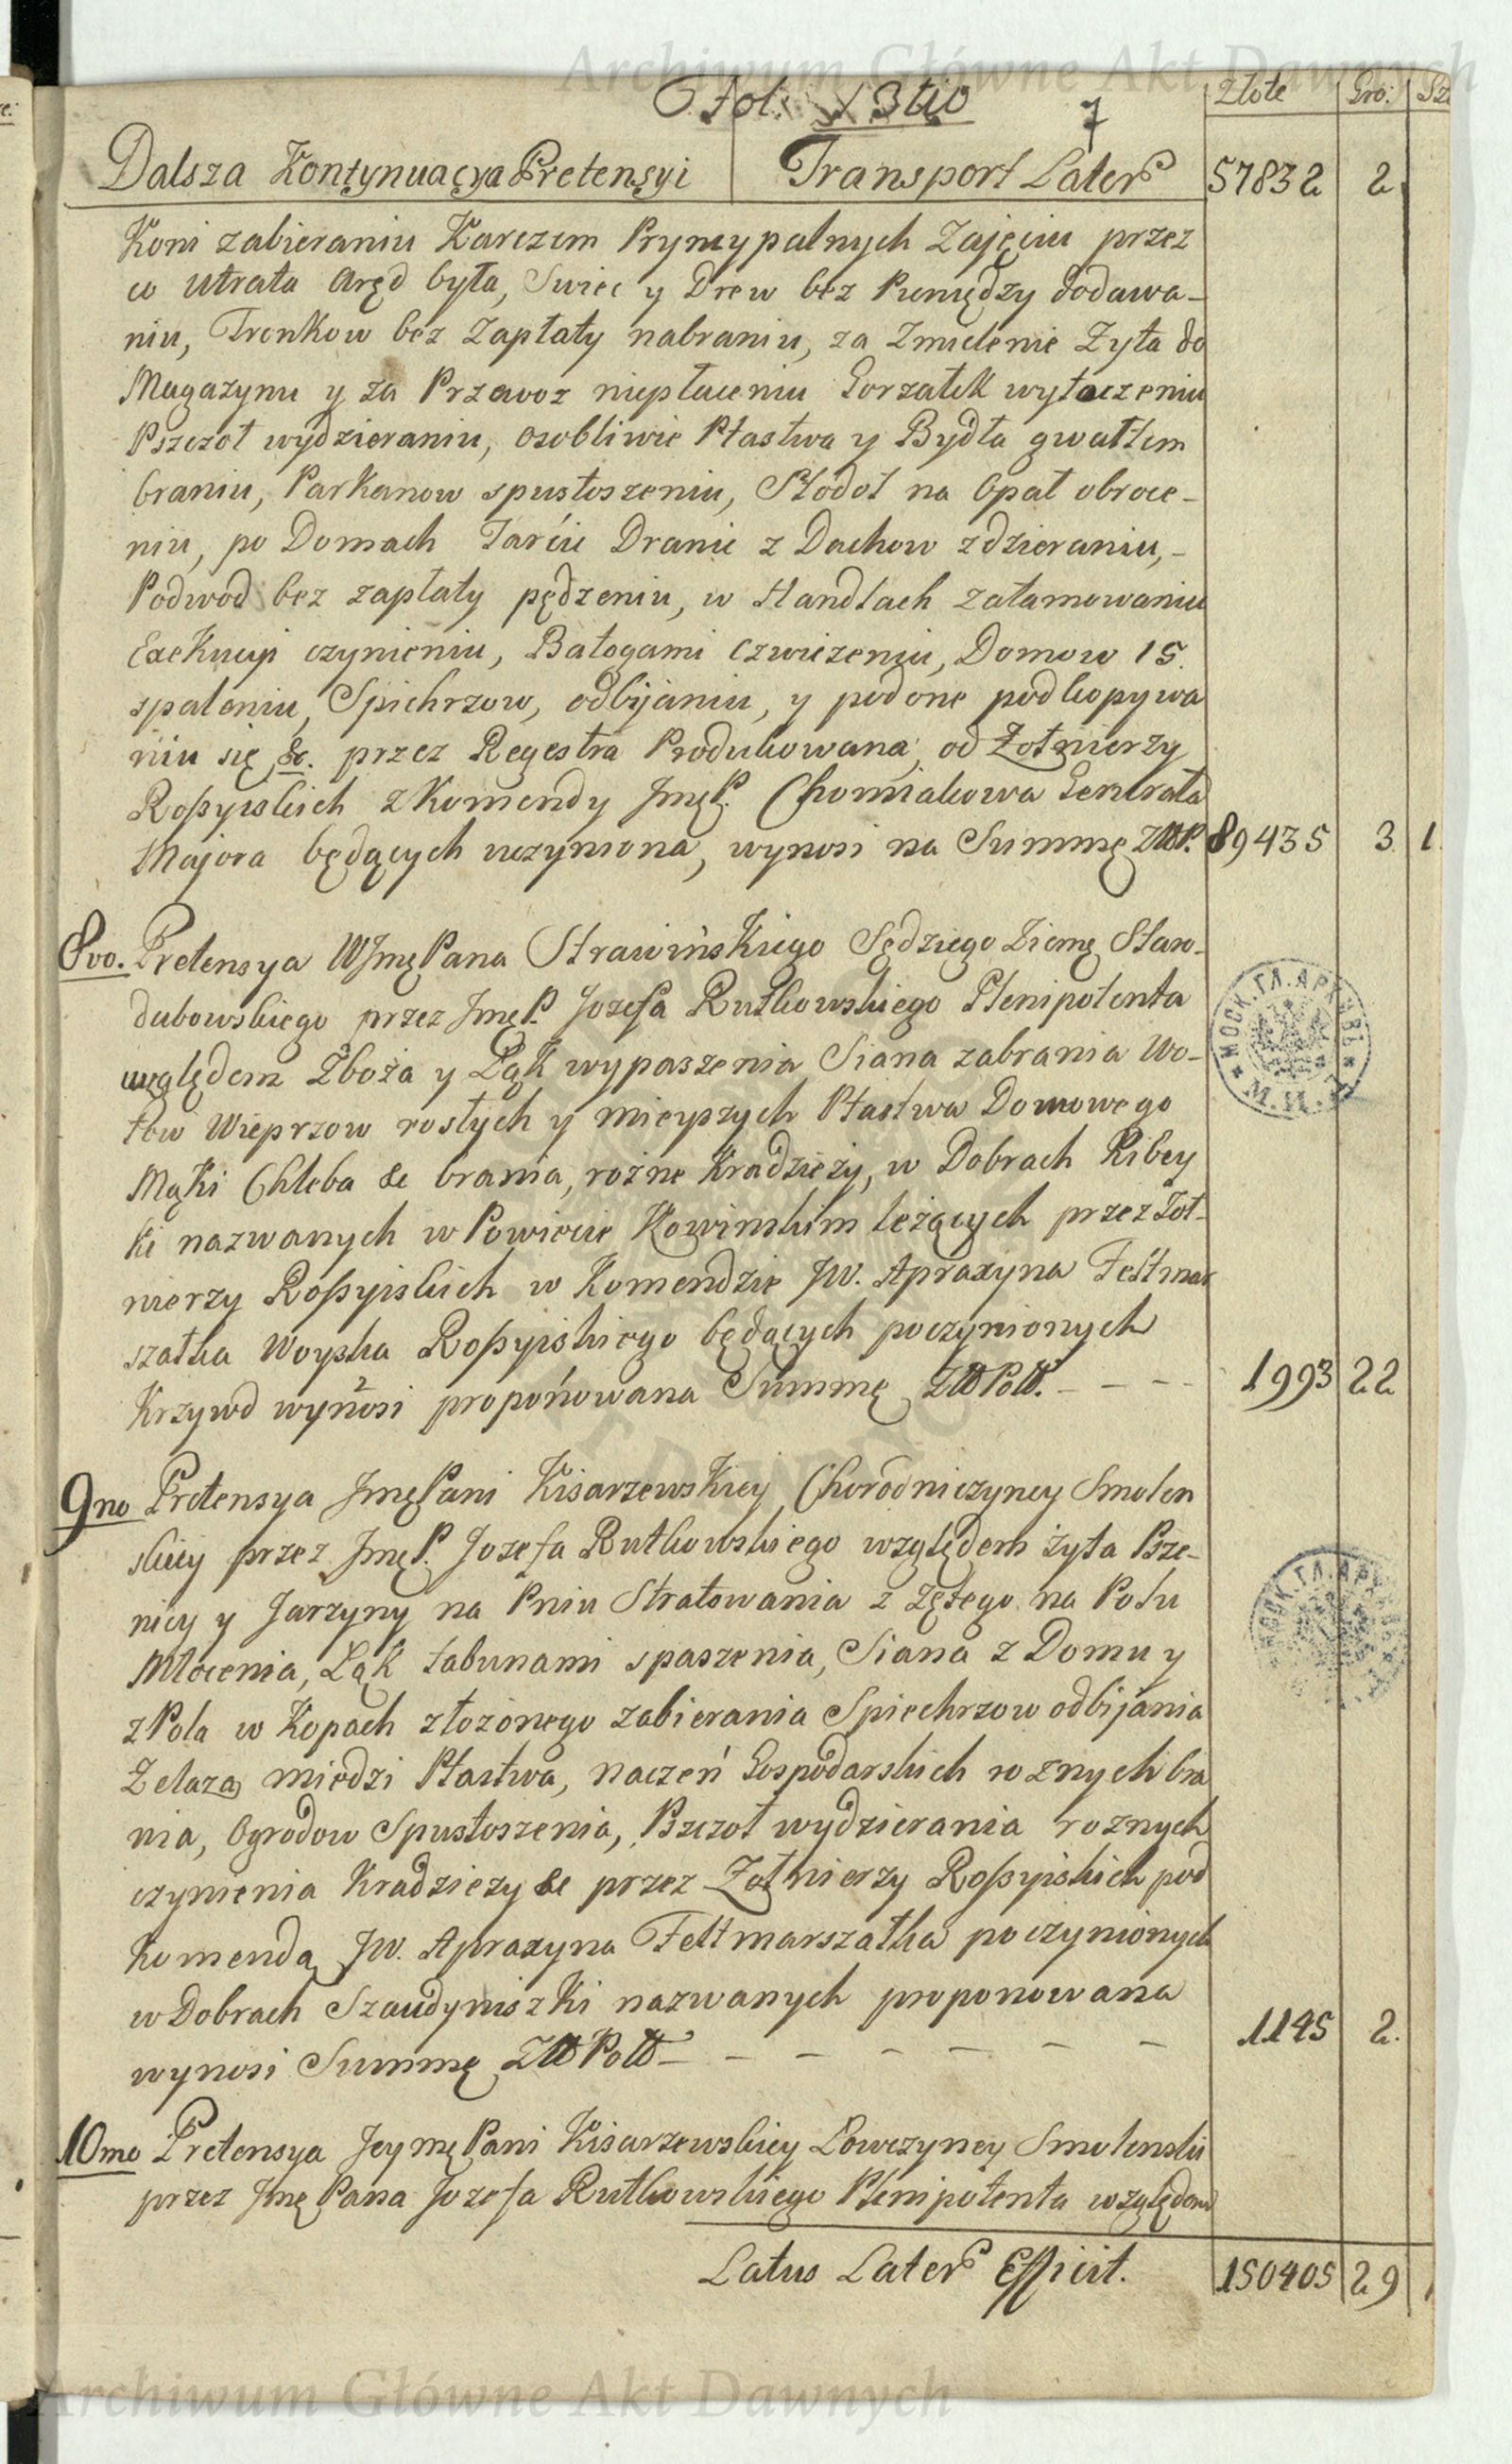 Archiwum Główne Akt Dawnych
Fol. 3tio
7
Złote Gro: Sz
Dalsza Kontynuacya Pretensyi Transport Later 57832 2.
Koni zabieraniu Karczem Pryncypalnych Zajęciu przez
co utrata Aręd była, Swiec y Drew bez Pieniędzy dodawa-
niu, Tronkow bez Zapłaty nabraniu, za Zmielenie Zyta do
Magazynu y za Przewoz niepłaceniu Gorzałek wytoczeniu
Pszczoł wydzieraniu, osobliwie Ptastwa y Bydła gwałtem
braniu, Parkanow spustoszeniu, Stodoł na Opał obroce-
niu, po Domach Tarcic Dranic z Dachow zdzieraniu,-
Podwod bez zapłaty pędzeniu, w Handlach zatamowaniu
Exekucyi czynieniu, Batogami Czwiczeniu, Domow 15.
spaleniu, Spichrzow, odbijaniu, y pod one podkopywa
niu się &c. przez Regestra Produkowana, od Zołnierzy
Roßyiskich z Komendy JmęP. Chomiakowa Generała
Majora będących uczyniona, wynosi na Summę ZłłP. 89435 3. 1.
8vo. Pretensya WJmę Pana Strawińskiego Sędziego Ziemę Staro-
dubowskiego przez JmęP. Jozefa Rutkowskiego Plenipotenta
względem Zboża y Łąk wypaszenia Siana zabrania Wo-
łow Wieprzow rosłych y mieyszych Ptastwa Domowego
Mąki Chleba &c brania, rożne Kradzieży, w Dobrach Ribey
ki nazwanych w Powiecie Kowinskim leżących przez Żoł-
nierzy Roßyiskich w Komendzie JW. Apraxyna Feltmar
szałka Woyska Roßyiskiego będących poczynionych
Krzywd wynosi proponowana Summę Złł Poll. - - - - 1993 22
9no Pretensya Jmę Pani Kisarzewskiey Chorodniczyney Smolen
skiey przez JmęP. Jozefa Rutkowskiego względem żyta Psze-
nicy y Jarzyny na Pniu Stratowania z Zętego na Polu
Młocenia, Łąk tabunami spaszenia, Siana z Domu y
z Pola w Kopach złożonego zabierania Spiechrzow odbijania
Zelaza miedzi Ptastwa, naczeń Gospodarskich roznych bra
nia, Ogrodow Spustoszenia, Pszczoł wydzierania roznych
czynienia Kradziezy &c przez Żołnierzy Roßyiskich pod
Komendą JW. Apraxyna Feltmarszałka poczynionych
w Dobrach Szaudyniszki nazwanych proponowana
wynosi Summę Złł Poll - - - - - - - 1145 2.
10mo Pretensya Jeymę Pani Kisarzewskiey Łowczyney Smolenskie
przez Jmę Pana Jozefa Rutkowskiego Plenipotenta względem
Latus Later Efficit. 150405 29 1
МОСК.ГЛ.АРХИВЪ М.И.Д.
МОСК.ГЛ.АРХИВЪ
Archiwum Główne Akt Dawnych